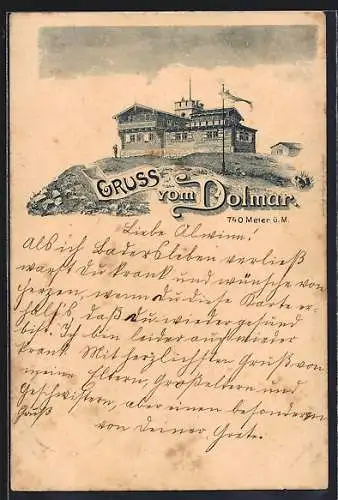 GRUSS
vom Dolmar.
740 Meter ü. M.
Liebe Alwine!
Als ich Badersleben verließ
warst Du krank und wünsche von
Herzen, wenn du diese Karte er-
hälts, daß du wieder gesund
bist. Ich bin leider auch wieder
krank. Mit herzlichsten Gruß von
meinen Eltern, Großeltern und
Geschwistern, aber einen besonderen
Gruß
von deiner Grete.